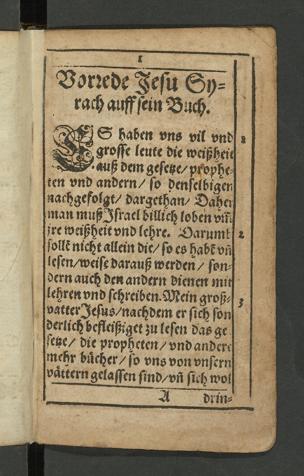 1
Vorrede Jesu Sy=
rach auff sein Buch.
ES haben vns vil vnd
grosse leute die weißheit
auß dem gesetze/ prophe
ten vnd andern/ so denselbigen
nachgefolgt/ dargethan/ Daher
man muß Israel billich loben vñ
jre weißheit vnd lehre. Darumb
sollē nicht allein die/ so es habē vñ
lesen/ weise darauß werden/ son=
dern auch den andern dienen mit
lehren vnd schreiben. Mein groß=
vatter Jesus/ nachdem er sich son
derlich befleißiget zu lesen das ge
setze/ die propheten/ vnd andere
mehr bücher/ so vns von vnsern
vättern gelassen sind/ vñ sich wol
A drin=
2
3